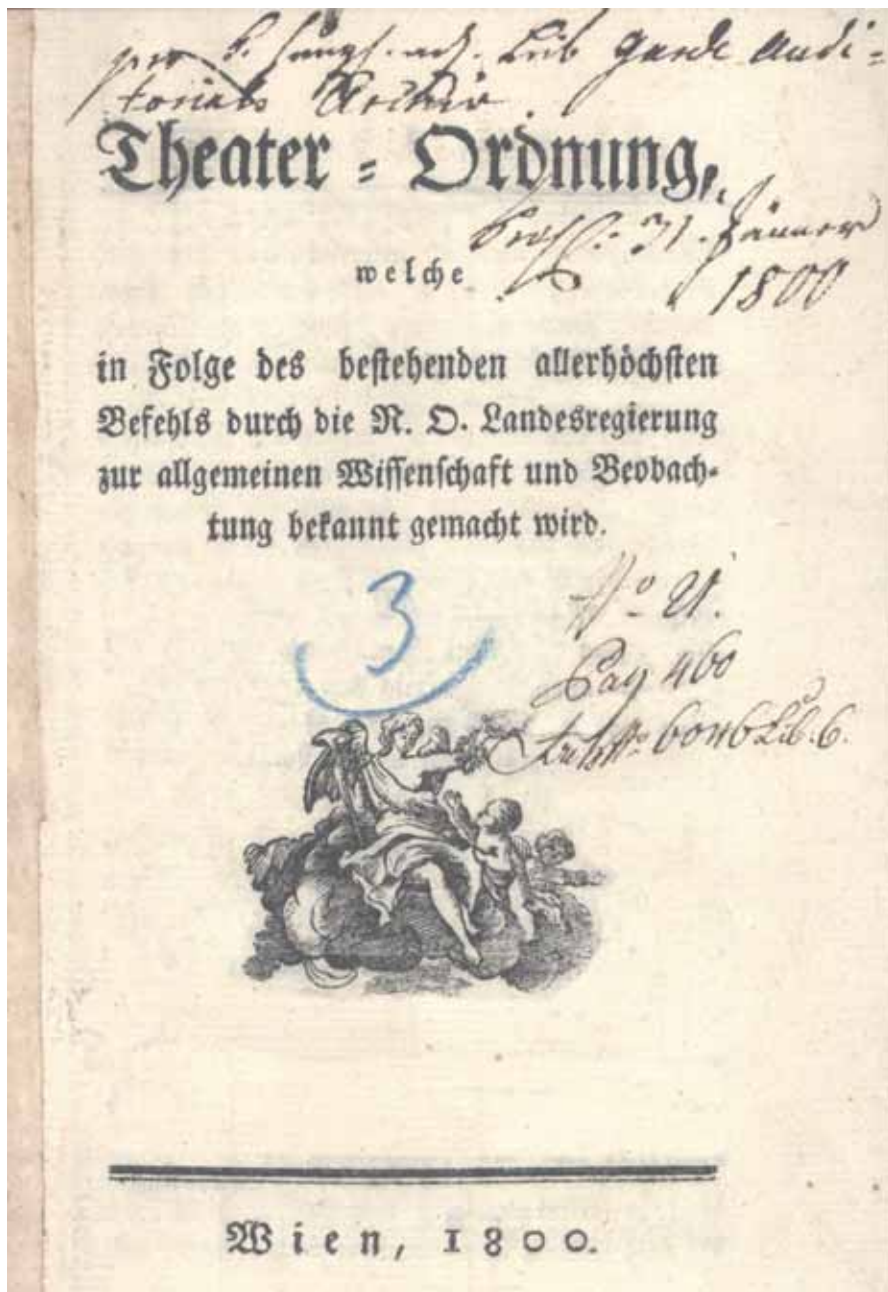 Leib Garde Audi=
toriats Archiv.
Theater = Ordnung,
31. Jänner
welche
1800
in Folge des bestehenden allerhöchsten
Befehls durch die N. O. Landesregierung
zur allgemeinen Wissenschaft und Beobach-
tung bekannt gemacht wird.
3
Pag 460
6046 Lib. 6.
Wien, 1800.